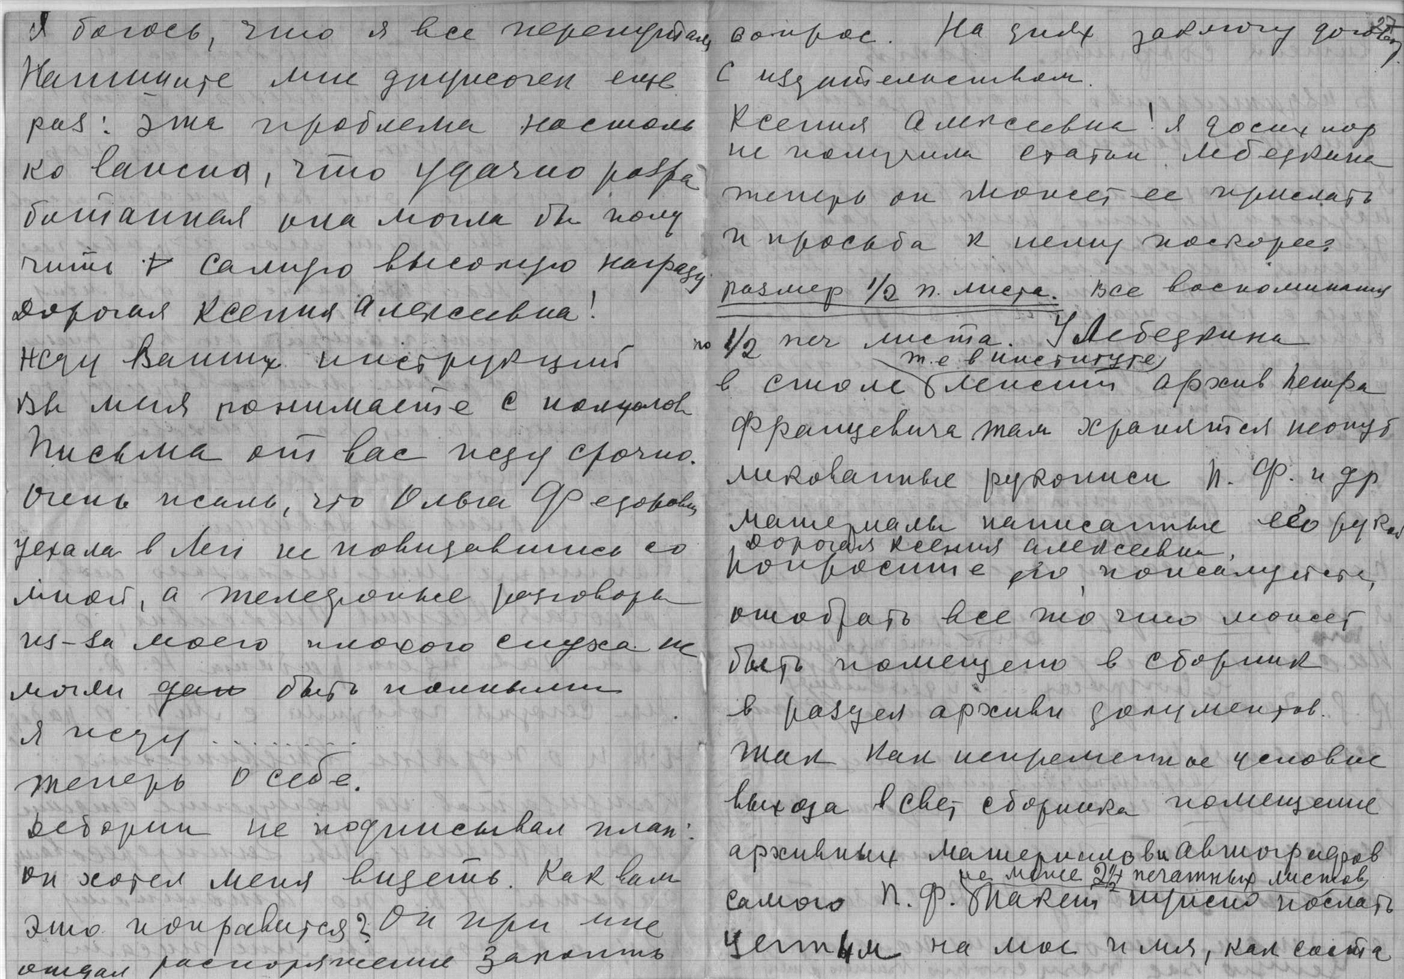 Я боюсь, что я все перепутала
Напишите мне дружочек еще
раз: эта проблема настоль
ко важна, что удачно разра
ботанная она могла бы полу
чить самую высокую награду
Дорогая Ксения Алексеевна!
Жду Ваших инструкций
Вы меня понимаете с полуслов
Письма от вас жду срочно.
Очень жаль, что Ольга Федоровна
уехала в Лен не повидавшись со
мной, а телефонные разговоры
из-за моего плохого слуха не
могли быть полными
Я жду ..........
Теперь о себе.
Деборин не подписывал план:
он хотел меня видеть. Как вам
это понравится? Он при мне
отдал распоряжение
27
вопрос. На днях заключу договор
с издательством.
Ксения Алексеевна! я до сих пор
не получила статьи Лебедкина
теперь он может ее прислать
и просьба к нему поскорее
размер 1/2 п. листа. Все воспоминания
по 1/2 печ листа. У Лебедкина
т.е в институте
в столе лежит архив Петра
Францевича там хранятся неопуб
ликованные рукописи П. Ф. и др
материалы написанные его рукой
Дорогая Ксения Алексеевна,
попросите его, пожалуйста,
отобрать все то что может
быть помещено в сборник
в раздел архивн документов.
Так как непременное условие
выхода в свет сборника помещение
архивных материалов автографов
не менее 2 печатных листов
самого П. Ф. Пакет нужно послать
ценным на мое имя, как соста